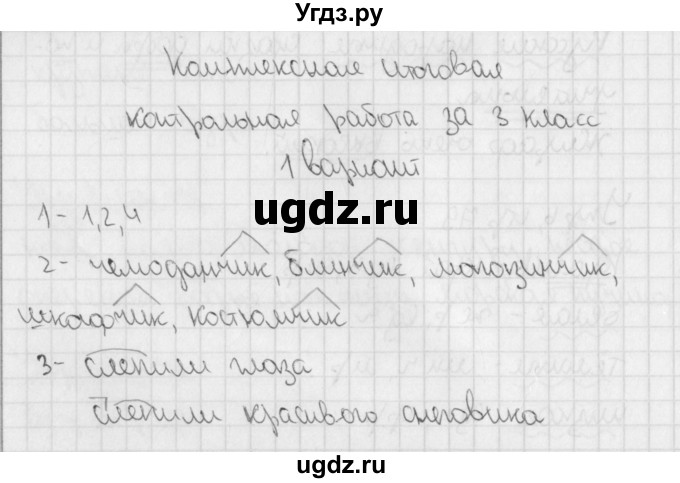 Угдз.ру
Комплексная итоговая
контрольная работа за 3 класс
1 вариант
ugdz.ru
1- 1,2,4
2- чемоданчик, блинчик, магазинчик,
шкафчик, костюмчик
3- слепили глаза
Слепили красивого снеговика
ugdz.ru